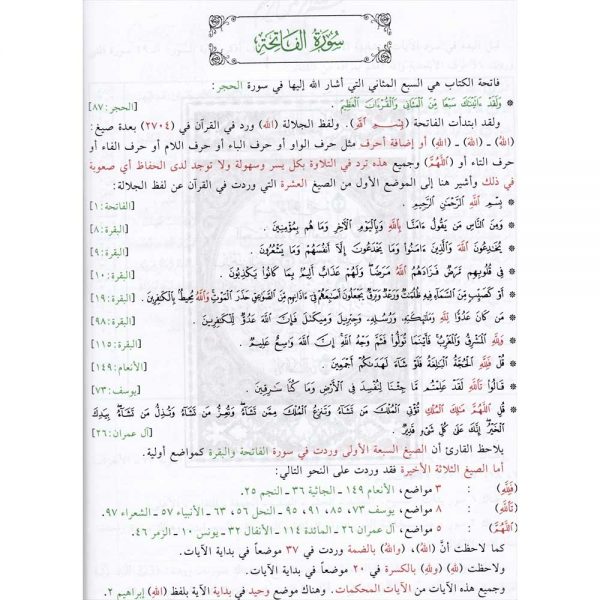 سُورَةُ الفَاتِحَةِ
فاتحة الكتاب هي السبع المثاني التي أشار الله إليها في سورة الحجر:
* وَلَقَدْ ءَاتَيْنَٰكَ سَبْعًا مِّنَ ٱلْمَثَانِي وَٱلْقُرْءَانَ ٱلْعَظِيمَ . [الحجر:٨٧]
ولقد ابتدأت الفاتحة (بِسْمِ ٱللَّهِ). ولفظ الجلالة (الله) ورد في القرآن في (٢٧٠٤) بعدة صيغ:
(اللهُ) ـ (اللهَ) ـ (اللهِ) أو إضافة أحرف مثل حرف الواو أو حرف الباء أو حرف اللام أو حرف الفاء أو
حرف التاء أو (ٱللَّهُمَّ) وجميع هذه ترد في التلاوة بكل يسر وسهولة ولا توجد لدى الحفاظ أي صعوبة
في ذلك وأشير هنا إلى الموضع الأول من الصيغ العشرة التي وردت في القرآن عن لفظ الجلالة:
* بِسْمِ ٱللَّهِ ٱلرَّحْمَٰنِ ٱلرَّحِيمِ . [الفاتحة:١]
* وَمِنَ ٱلنَّاسِ مَن يَقُولُ ءَامَنَّا بِٱللَّهِ وَبِٱلْيَوْمِ ٱلْأَخِرِ وَمَا هُم بِمُؤْمِنِينَ . [البقرة:٨]
* يُخَٰدِعُونَ ٱللَّهَ وَٱلَّذِينَ ءَامَنُوا۟ وَمَا يَخْدَعُونَ إِلَّآ أَنفُسَهُمْ وَمَا يَشْعُرُونَ . [البقرة:٩]
* فِي قُلُوبِهِم مَّرَضٌ فَزَادَهُمُ ٱللَّهُ مَرَضًا وَلَهُمْ عَذَابٌ أَلِيمٌ بِمَا كَانُوا۟ يَكْذِبُونَ . [البقرة:١٠]
* أَوْ كَصَيِّبٍ مِّنَ ٱلسَّمَآءِ فِيهِ ظُلُمَٰتٌ وَرَعْدٌ وَبَرْقٌ يَجْعَلُونَ أَصَٰبِعَهُمْ فِيٓ ءَاذَانِهِم مِّنَ ٱلصَّوَٰعِقِ حَذَرَ ٱلْمَوْتِ وَٱللَّهُ مُحِيطٌۢ بِٱلْكَٰفِرِينَ . [البقرة:١٩]
* مَن كَانَ عَدُوًّا لِّلَّهِ وَمَلَٰٓئِكَتِهِۦ وَرُسُلِهِۦ وَجِبْرِيلَ وَمِيكَىٰلَ فَإِنَّ ٱللَّهَ عَدُوٌّ لِّلْكَٰفِرِينَ . [البقرة:٩٨]
* وَلِلَّهِ ٱلْمَشْرِقُ وَٱلْمَغْرِبُ فَأَيْنَمَا تُوَلُّوا۟ فَثَمَّ وَجْهُ ٱللَّهِ إِنَّ ٱللَّهَ وَٰسِعٌ عَلِيمٌ . [البقرة:١١٥]
* قُلْ فَلِلَّهِ ٱلْحُجَّةُ ٱلْبَٰلِغَةُ فَلَوْ شَآءَ لَهَدَىٰكُمْ أَجْمَعِينَ . [الأنعام:١٤٩]
* قَالُوا۟ تَٱللَّهِ لَقَدْ عَلِمْتُم مَّا جِئْنَا لِنُفْسِدَ فِي ٱلْأَرْضِ وَمَا كُنَّا سَٰرِقِينَ . [يوسف:٧٣]
* قُلِ ٱللَّهُمَّ مَٰلِكَ ٱلْمُلْكِ تُؤْتِي ٱلْمُلْكَ مَن تَشَآءُ وَتَنزِعُ ٱلْمُلْكَ مِمَّن تَشَآءُ وَتُعِزُّ مَن تَشَآءُ وَتُذِلُّ مَن تَشَآءُ بِيَدِكَ
ٱلْخَيْرُ إِنَّكَ عَلَىٰ كُلِّ شَيْءٍ قَدِيرٌ . [آل عمران:٢٦]
يلاحظ القارئ أن الصيغ السبعة الأولى وردت في سورة الفاتحة والبقرة كمواضع أولية.
أما الصيغ الثلاثة الأخيرة فقد وردت على النحو التالي:
(فَلِلَّهِ) : ٣ مواضع، الأنعام ١٤٩ ـ الجاثية ٣٦ ـ النجم ٢٥.
(تَٱللَّهِ) : ٨ مواضع، يوسف ٧٣، ٨٥، ٩١، ٩٥ ـ النحل ٥٦، ٦٣ ـ الأنبياء ٥٧ ـ الشعراء ٩٧.
(ٱللَّهُمَّ) : ٥ مواضع، آل عمران ٢٦ ـ المائدة ١١٤ ـ الأنفال ٣٢ ـ يونس ١٠ ـ الزمر ٤٦.
كما لاحظت أنَّ (اللهُ)، (واللهُ) بالضمة وردت في ٣٧ موضعاً في بداية الآيات.
ولاحظت (للهِ) (وللهِ) بالكسرة في ٢٠ موضعاً في بداية الآيات.
وجميع هذه الآيات من الآيات المحكمات. وهناك موضع وحيد في بداية الآية بلفظ (اللهِ) إبراهيم ٢.